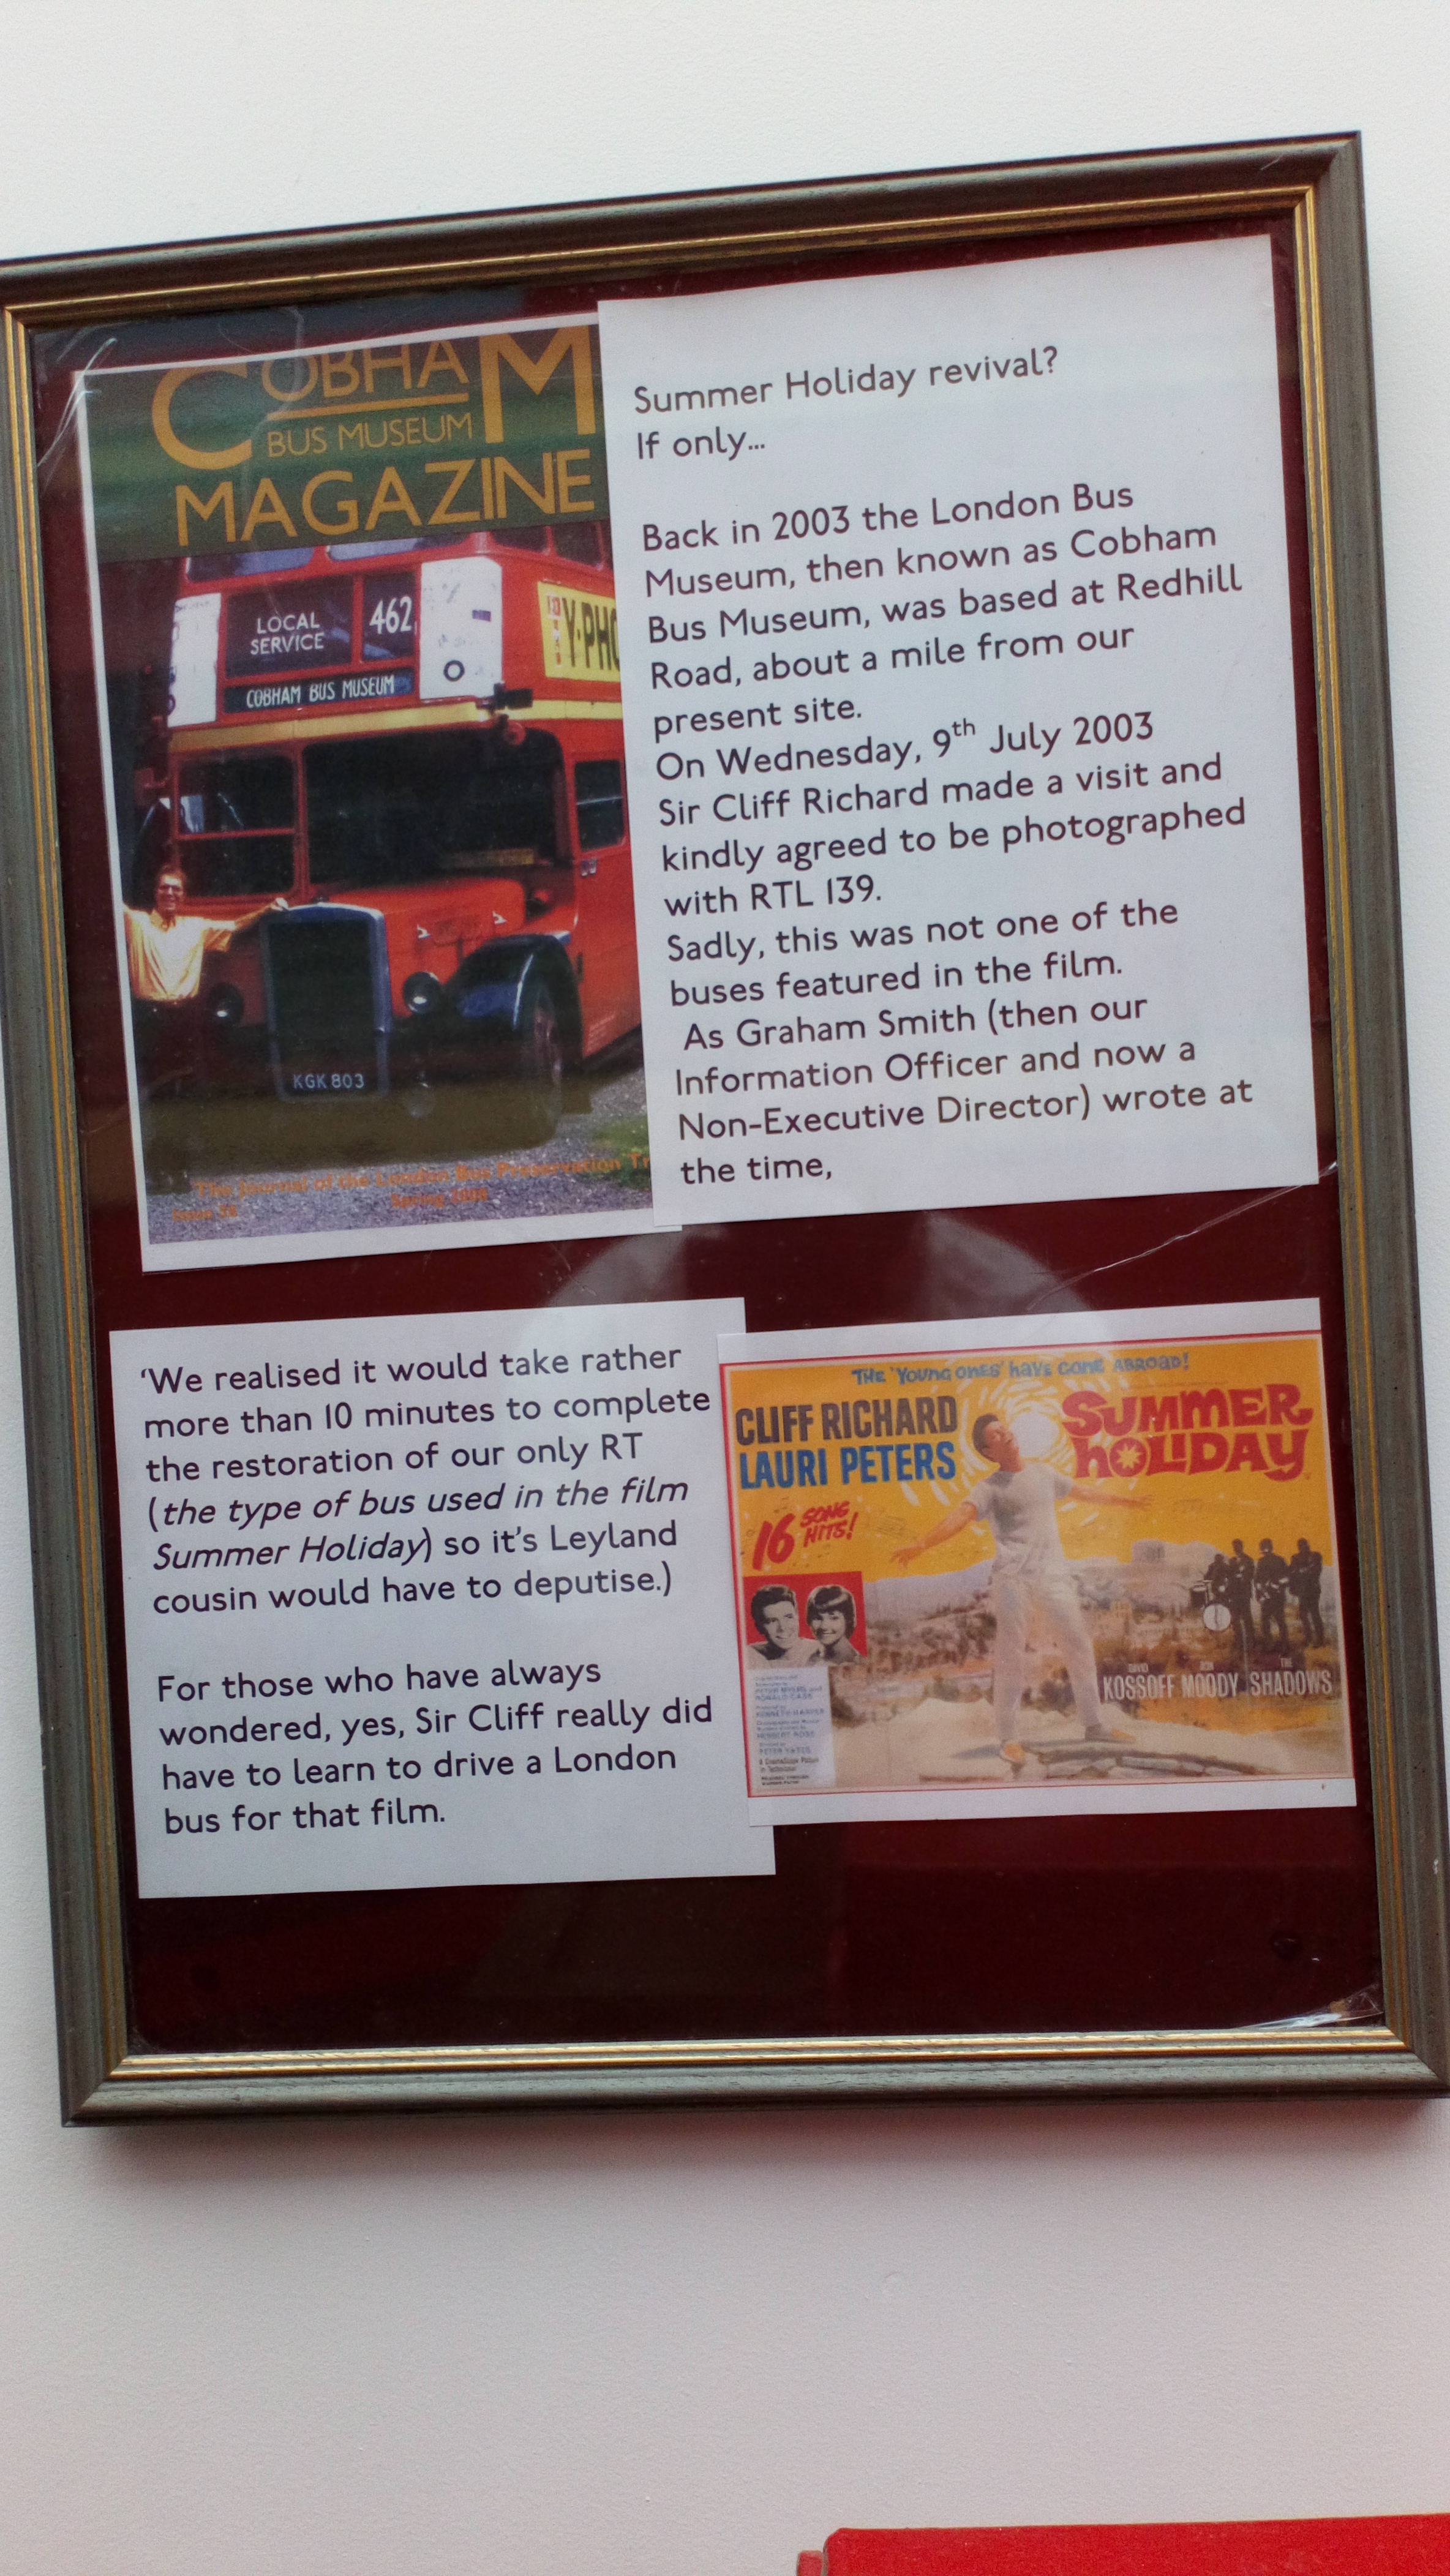 COBHAM
BUS MUSEUM
MAGAZINE
LOCAL
SERVICE
462
COBHAM BUS MUSEUM
Y-PHO
KGK 803
The Journal of the London Bus Preservation Tr
Spring
Issue
Summer Holiday revival?
If only...
Back in 2003 the London Bus
Museum, then known as Cobham
Bus Museum, was based at Redhill
Road, about a mile from our
present site.
On Wednesday, 9th July 2003
Sir Cliff Richard made a visit and
kindly agreed to be photographed
with RTL 139.
Sadly, this was not one of the
buses featured in the film.
As Graham Smith (then our
Information Officer and now a
Non-Executive Director) wrote at
the time,
‘We realised it would take rather
more than 10 minutes to complete
the restoration of our only RT
(the type of bus used in the film
Summer Holiday) so it's Leyland
cousin would have to deputise.)
For those who have always
wondered, yes, Sir Cliff really did
have to learn to drive a London
bus for that film.
THE 'YOUNG ONES' HAVE GONE ABROAD!
CLIFF RICHARD
LAURI PETERS
SUMMER
HOLIDAY
16 SONG
HITS!
DAVID RON THE
KOSSOFF MOODY SHADOWS
PETER MYERS and
RONALD CASS
KENNETH HARPER
HERBERT ROSS
PETER YATES
A CinemaScope Picture
in Technicolor